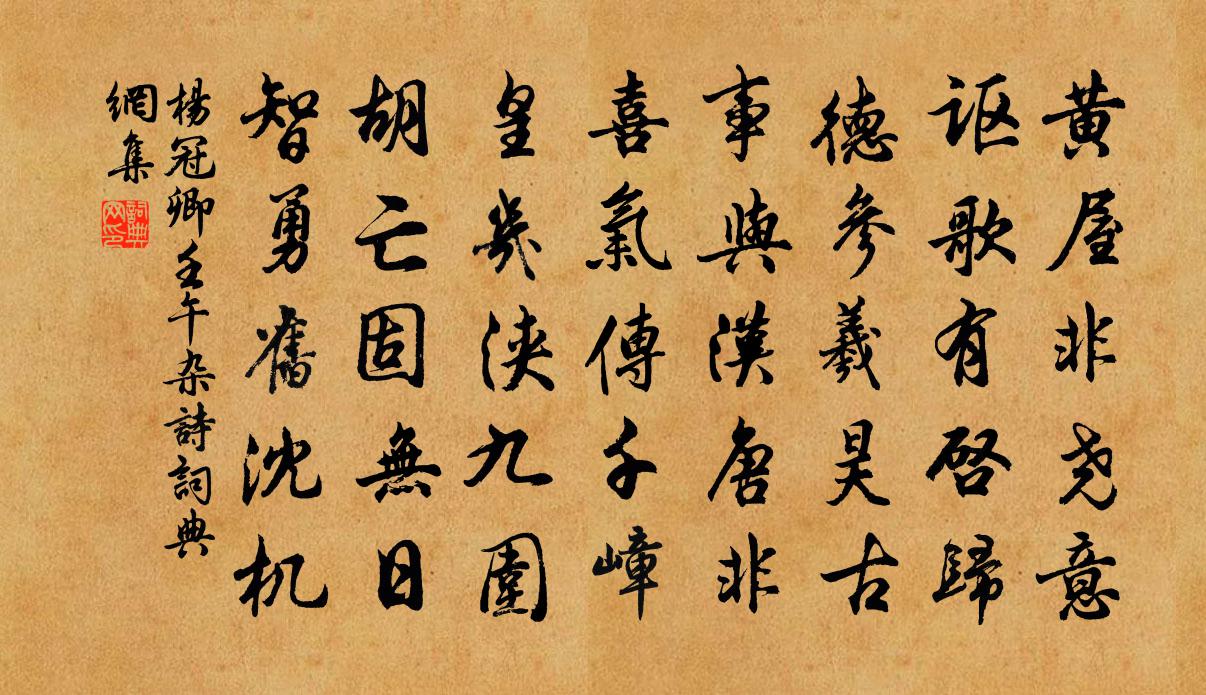 黄屋非尧意
讴歌有啓歸
德參羲昊古
事與漢唐非
喜氣傳千嶂
皇威浹九圍
胡亡固無日
智勇奮沈机
楊冠卿壬午杂詩詞典
網集
詞典
网印